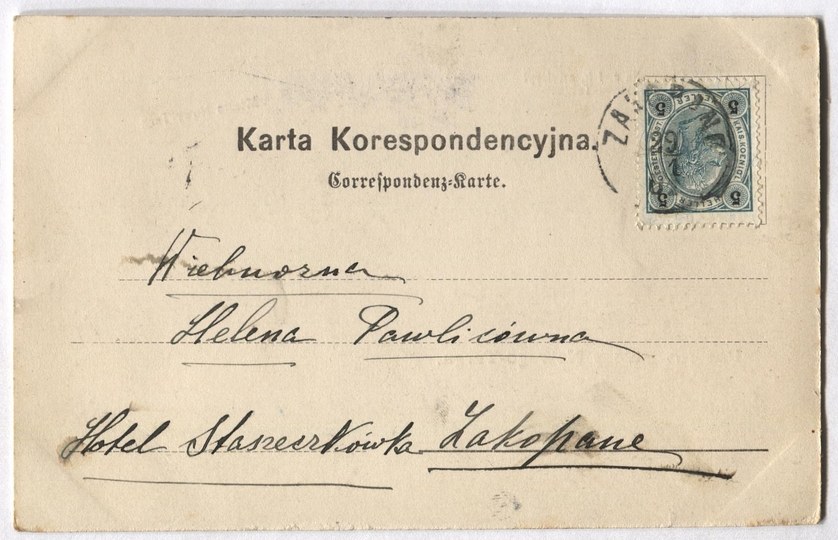 Karta Korespondencyjna.
Correspondenz-Karte.
ZAKOPANE
29
5 HELLER 5
KAIS. KOENIGL.
5 HELLER 5
Wielmożna
Helena Pawlicówna
Hotel Staszeczkówka Zakopane